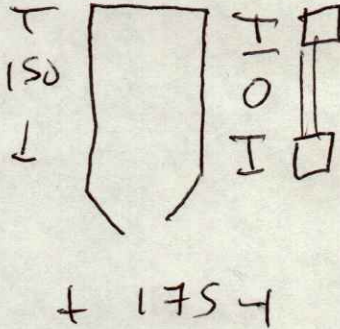 150
175